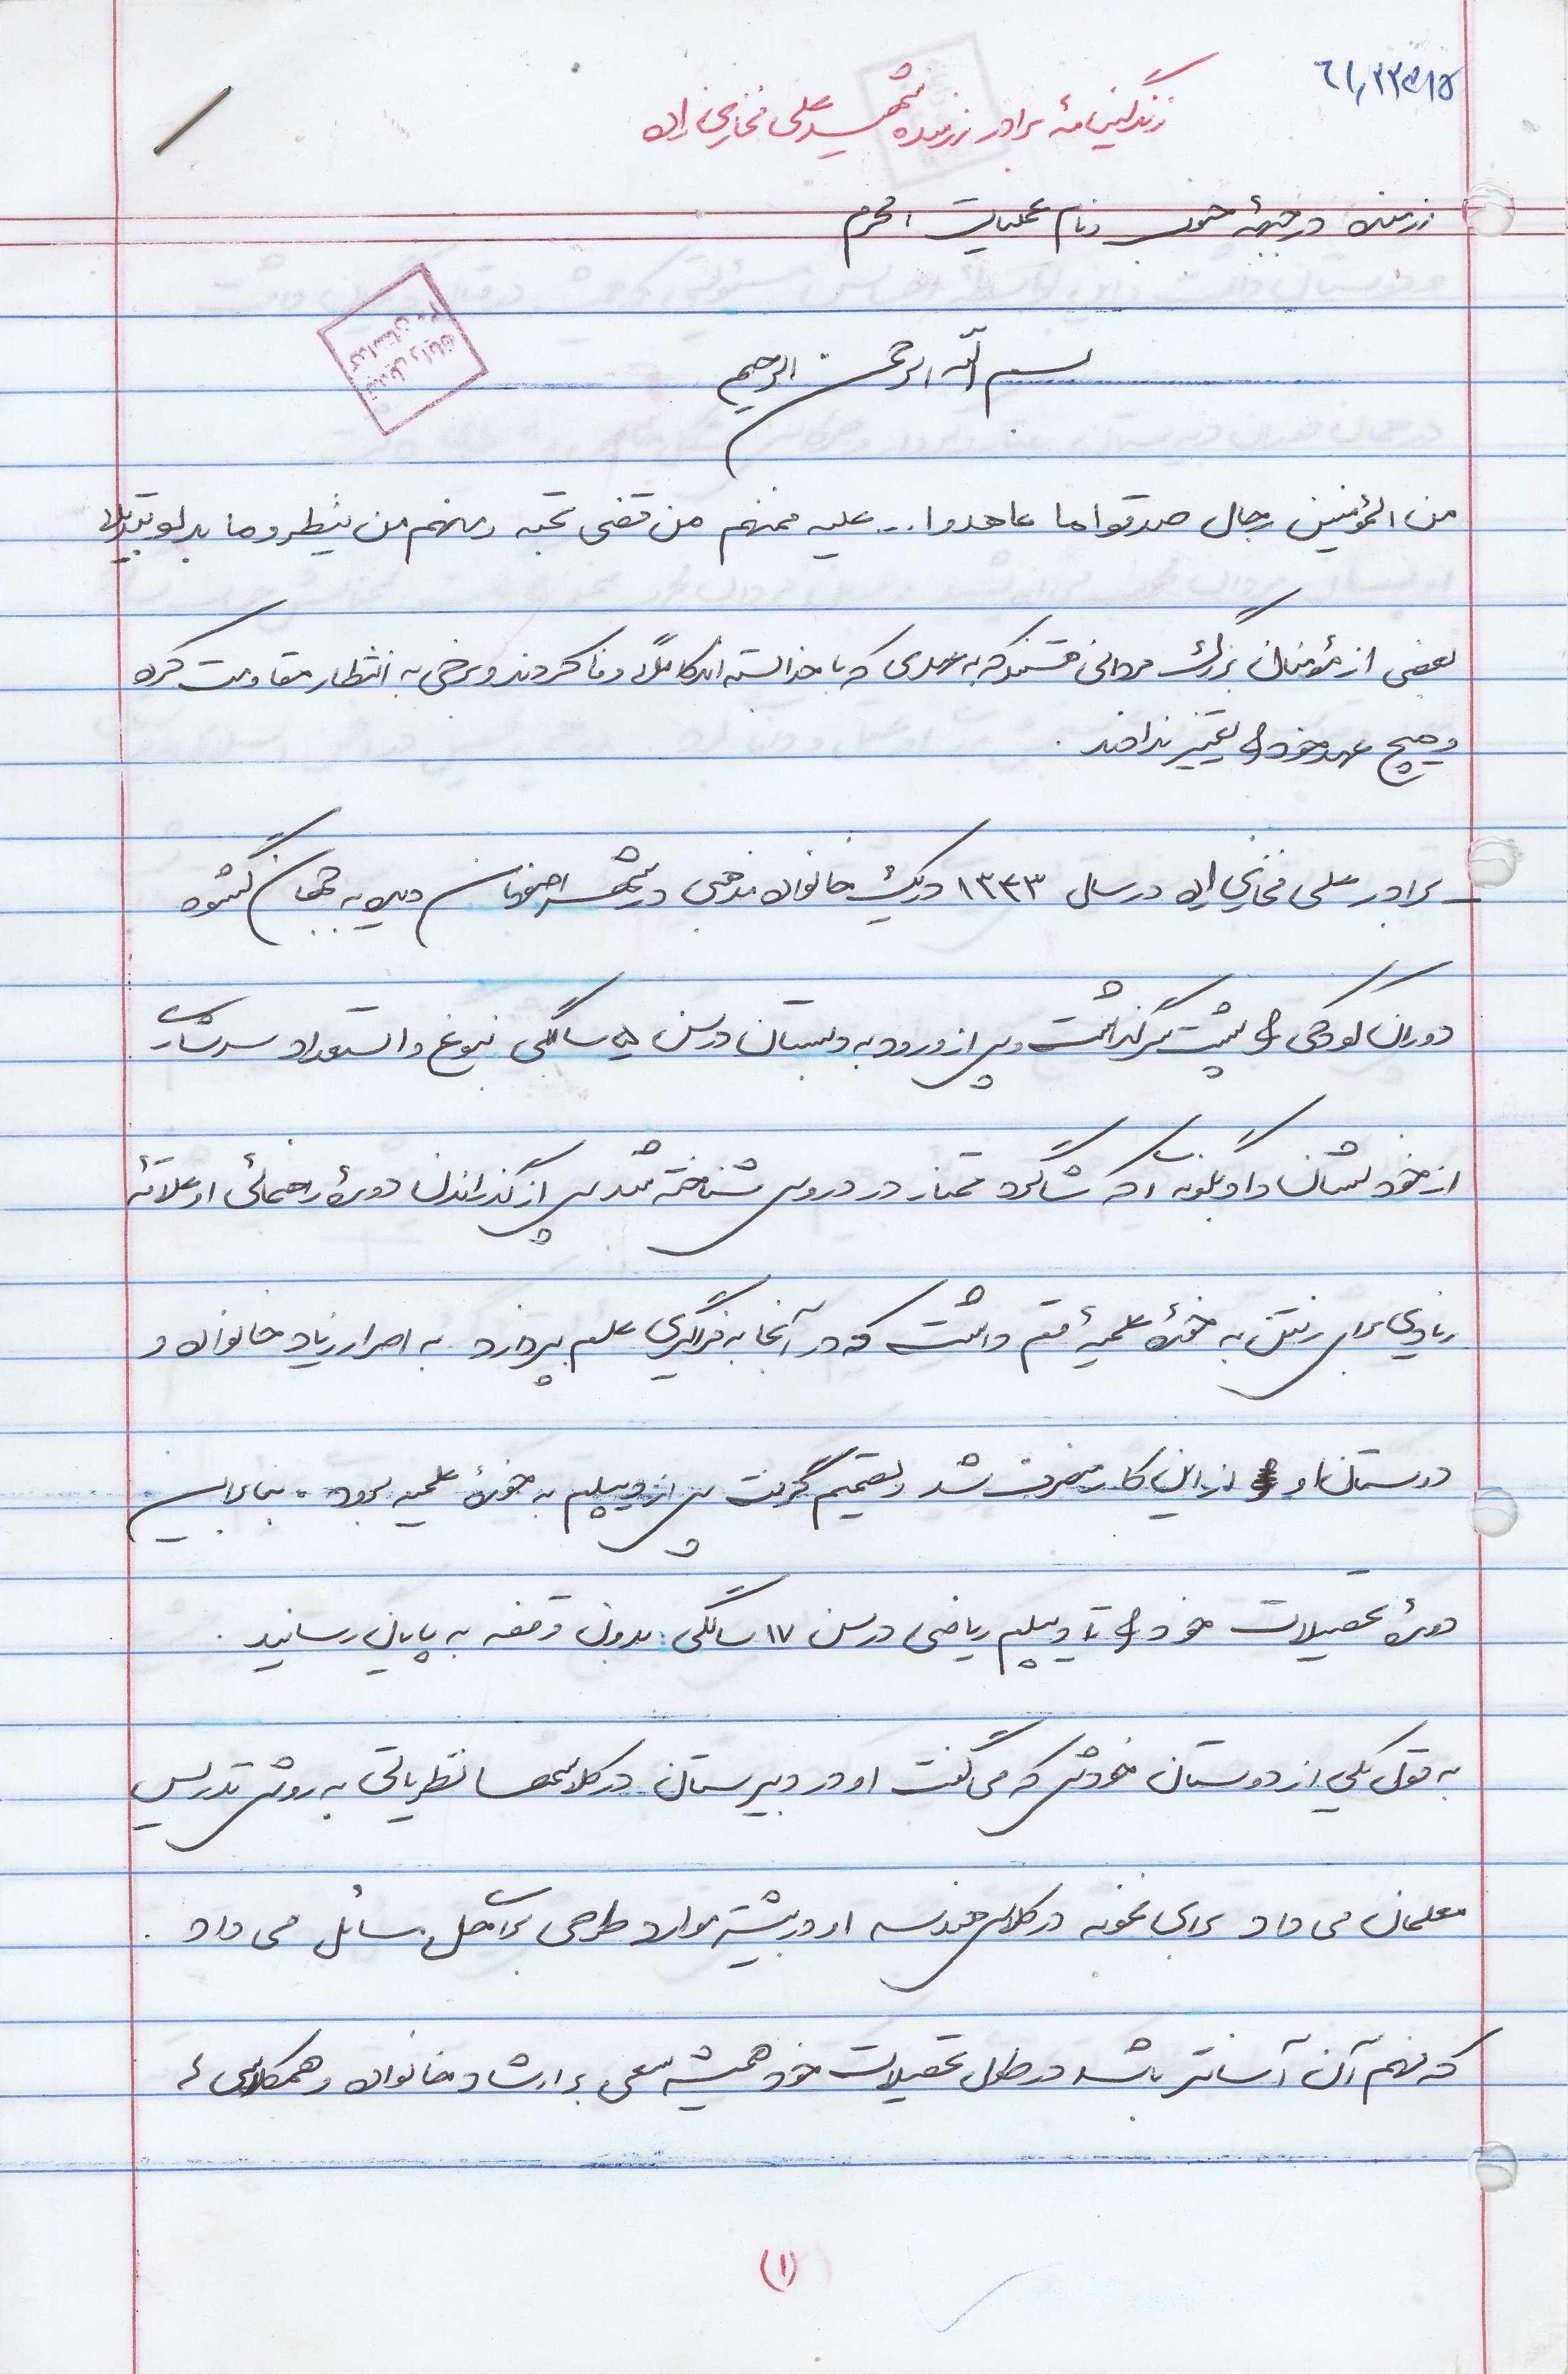 زندگینامهٔ برادر رزمنده شهید علی فخاری زاده
رزمنده در جبههٔ جنوب بنام عملیات محرم
بسم الله الرحمن الرحیم
من المؤمنین رجال صدقوا ما عاهدوا... علیه فمنهم من قضی نحبه و منهم من ینظر وما بدلو تبدیلا
بعضی از مؤمنان بزرگ مردانی هستند که به عهدی که با خدا بسته اند کاملاً وفا کردند و برخی به انتظار مقاومت کرده
و هیچ عهد خود را تغییر ندادند .
برادر علی فخاری زاده در سال ۱۳۴۳ در یک خانواده مذهبی در شهر اصفهان دیده به جهان گشود
دوران کودکی را پشت سر گذاشت و پس از ورود به دبستان در سن ۵ سالگی نبوغ و استعداد سرشاری
از خود نشان داد بگونه ای که شاگرد ممتاز در دروس شناخته شد پس از گذراندن دورهٔ راهنمائی او علاقهٔ
زیادی برای رفتن به حوزهٔ علمیهٔ قم داشت که در آنجا به فراگیری علم بپردازد به اصرار زیاد خانواده و
دوستان او از این کار منصرف شد و تصمیم گرفت پس از دیپلم به حوزهٔ علمیه برود . بنابراین
دورهٔ تحصیلات خود را تا دیپلم ریاضی در سن ۱۷ سالگی بدون وقفه به پایان رسانید .
به قول یکی از دوستان خودش که می گفت او در دبیرستان در کلاسها نظریاتی به روش تدریس
معلمان می داد برای نمونه در کلاس هندسه او در بیشتر موارد طرحی برای حل مسائل می داد .
که فهم آن آسانتر باشد در طول تحصیلات خود همیشه سعی بر ارشاد خانواده و همکلاسی
(۱)